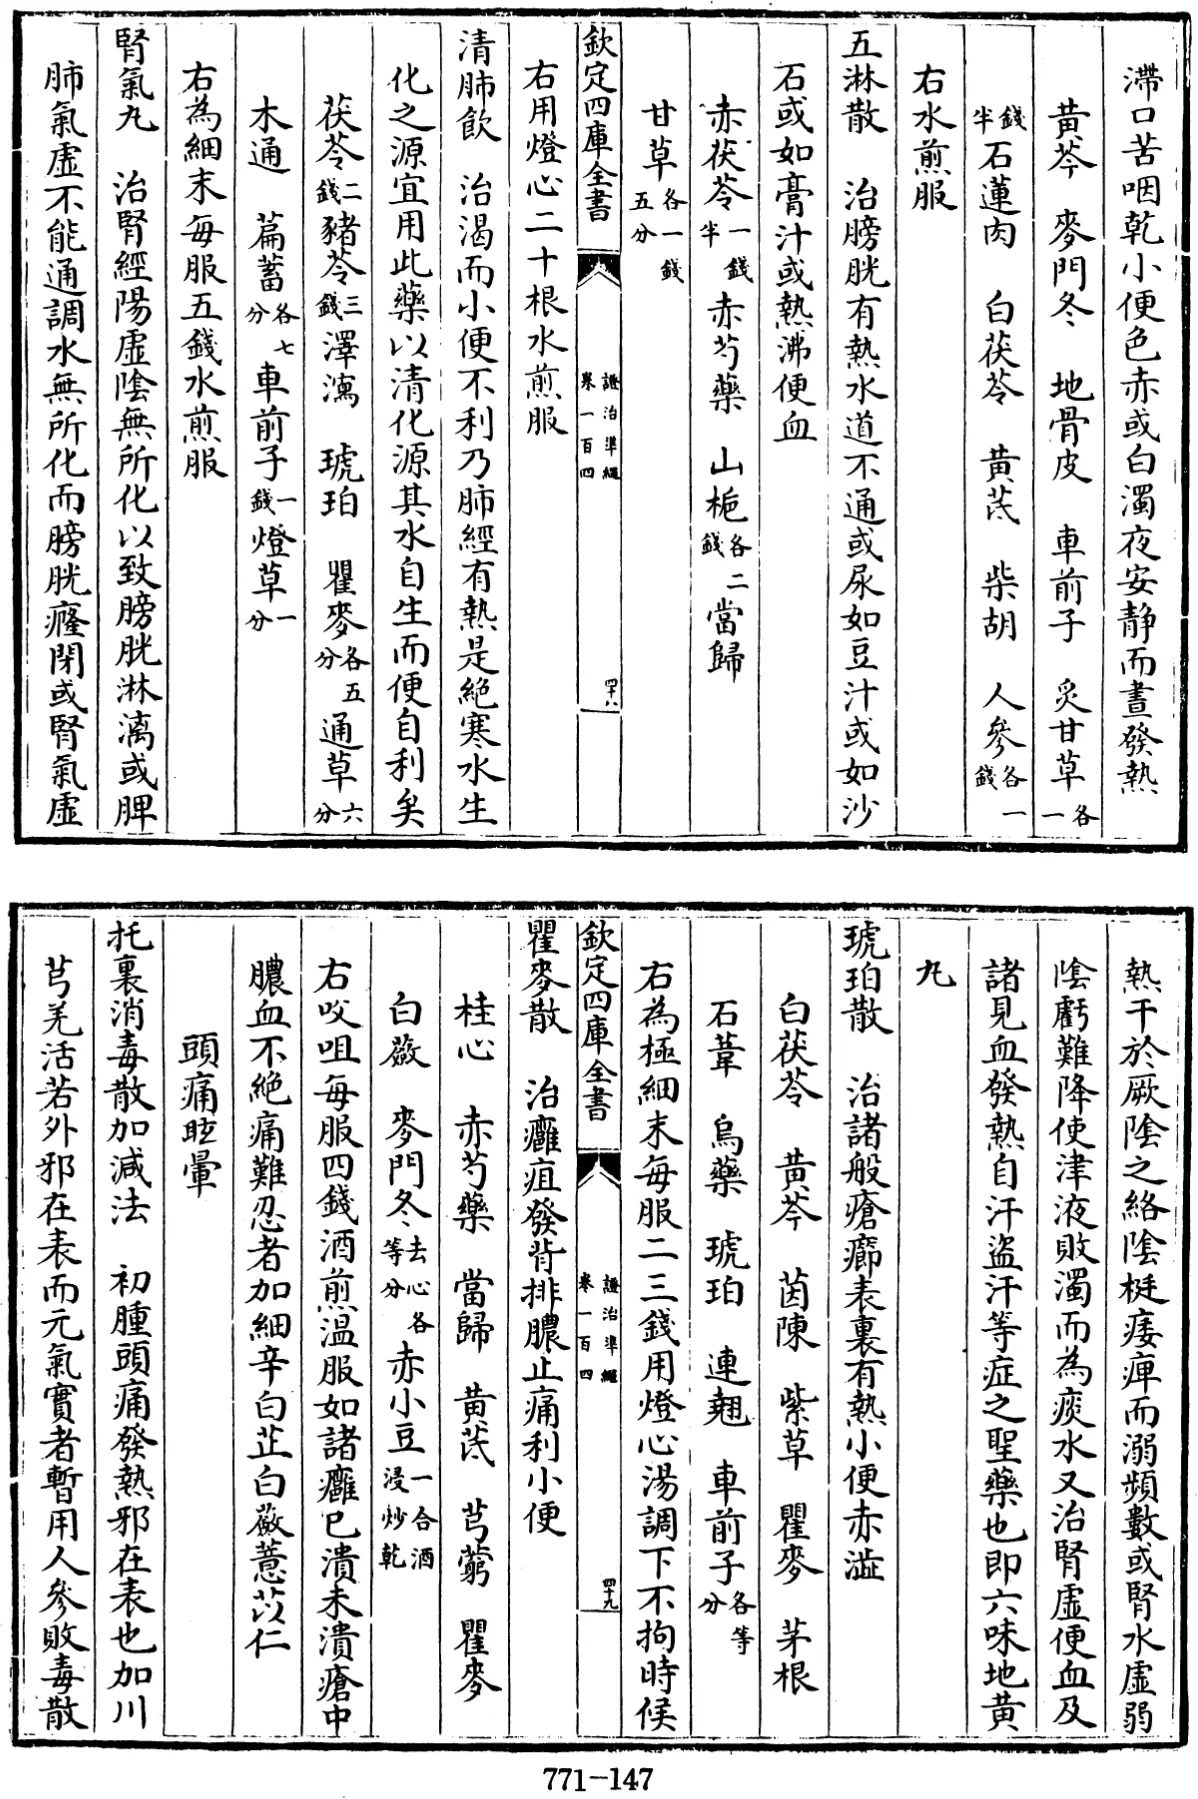 滯口苦咽乾小便色赤或白濁夜安靜而晝發熱
黄芩　麥門冬　地骨皮　車前子　炙甘草各一
錢半石蓮肉　白茯苓　黄茋　柴胡　人參各一錢
右水煎服
五淋散　治膀胱有熱水道不通或尿如豆汁或如沙
石或如膏汁或熱沸便血
赤茯苓一錢半赤芍藥　山梔各二錢當歸
甘草各一錢五分
欽定四庫全書　證治準繩卷一百四　四十八
右用燈心二十根水煎服
清肺飲　治渴而小便不利乃肺經有熱是絶寒水生
化之源宜用此藥以清化源其水自生而便自利矣
茯苓二錢豬苓三錢澤瀉　琥珀　瞿麥各五分通草六分
木通　萹蓄各七分車前子一錢燈草一分
右為細末每服五錢水煎服
腎氣丸　治腎經陽虛陰無所化以致膀胱淋漓或脾
肺氣虛不能通調水無所化而膀胱癃閉或腎氣虛
熱干於厥陰之絡陰梃痿痺而溺頻數或腎水虛弱
陰虧難降使津液敗濁而為痰水又治腎虛便血及
諸見血發熱自汗盜汗等症之聖藥也即六味地黄
丸
琥珀散　治諸般瘡癤表裏有熱小便赤澁
白茯苓　黄芩　茵陳　紫草　瞿麥　茅根
石葦　烏藥　琥珀　連翹　車前子各等分
右為極細末每服二三錢用燈心湯調下不拘時候
欽定四庫全書　證治準繩卷一百四　四十九
瞿麥散　治癰疽發背排膿止痛利小便
桂心　赤芍藥　當歸　黄茋　芎藭　瞿麥
白蘞　麥門冬去心各等分赤小豆一合酒浸炒乾
右㕮咀每服四錢酒煎温服如諸癰已潰未潰瘡中
膿血不絶痛難忍者加細辛白芷白蘞薏苡仁
頭痛眩暈
托裏消毒散加減法　初腫頭痛發熱邪在表也加川
芎羌活若外邪在表而元氣實者暫用人參敗毒散
771-147